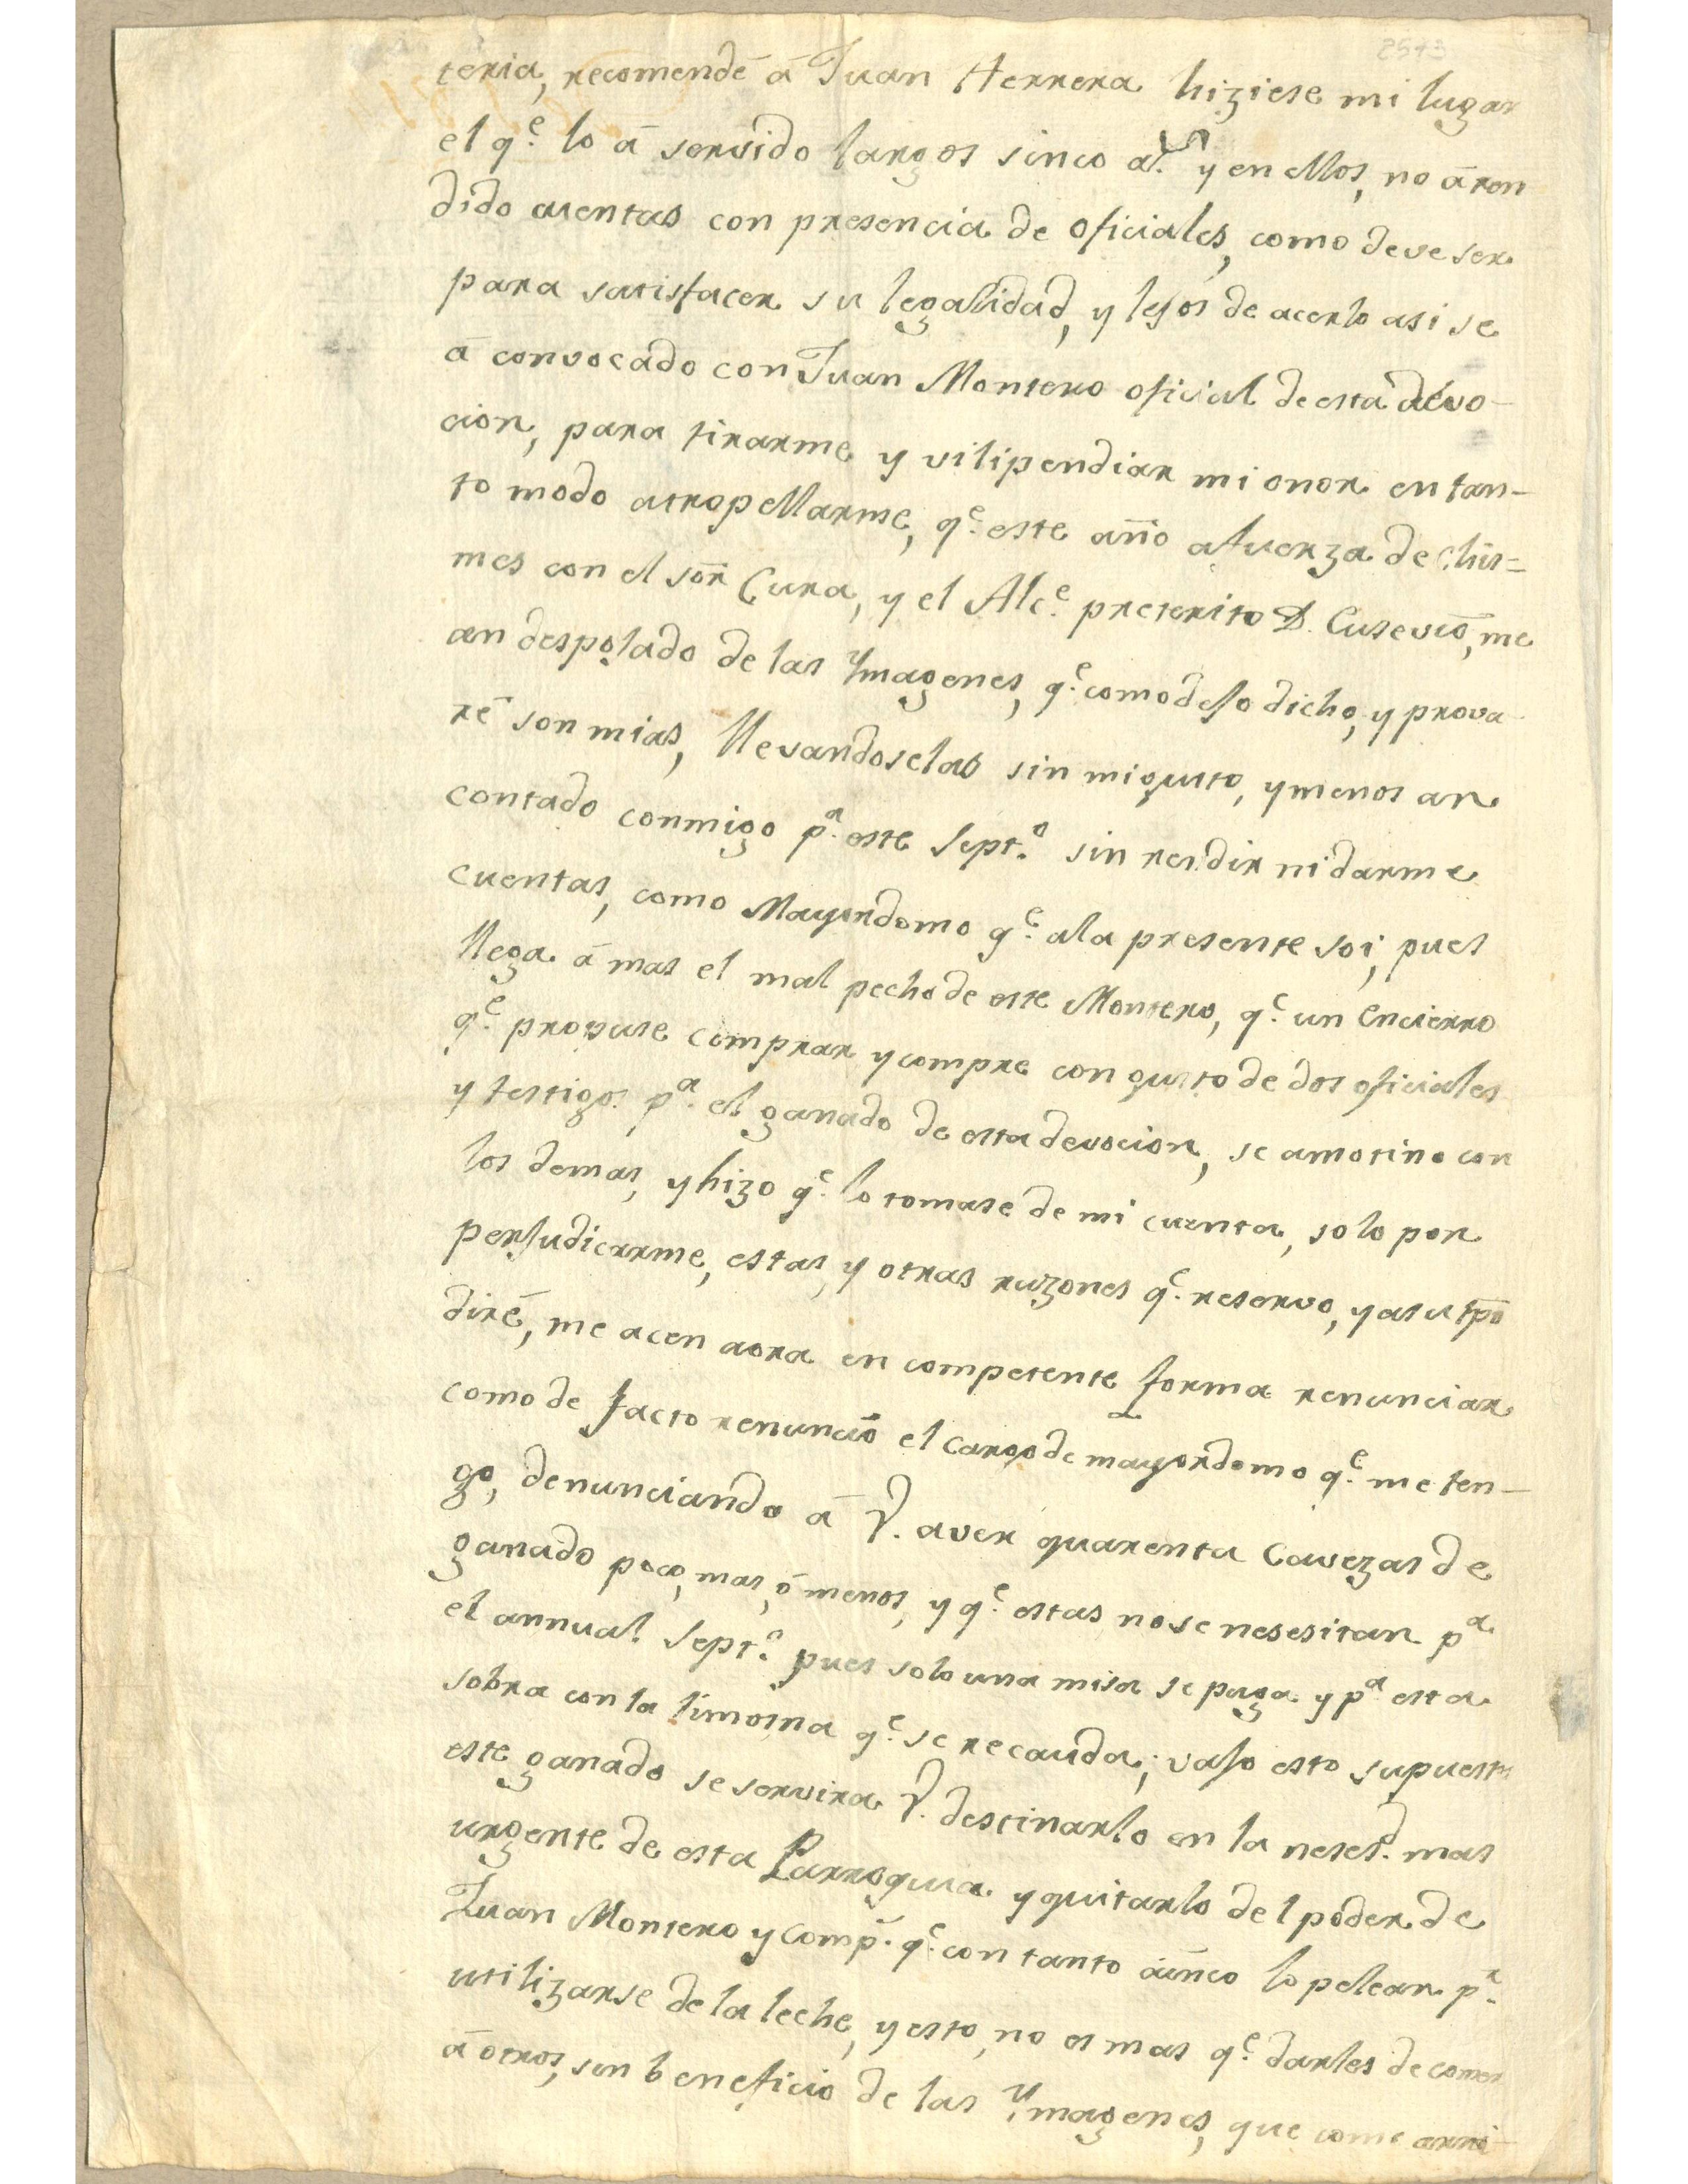 2543
teria, recomendé á Juan Herrera hiziese mi lugar
el q.e lo á servido largos sinco a.s y en ellos, no á ren
dido cuentas con presencia de oficiales, como deve ser
para satisfacer su legalidad, y lejos de acerlo asi se
á convocado con Juan Montero oficial de esta devo-
cion, para tirarme y vilipendiar mi onor en tan-
to modo atropellarme, q.e este año afuerza de chis=
mes con el sōr Cura, y el Alc.e preterito D. Eusevio, me
an despojado de las Ymagenes, q.e como dejo dicho, y prova
ré son mias, llevandoselas sin mi gusto, y menos an
contado conmigo p.a este Sept.o sin rendir ni darme
cuentas, como Mayordomo q.e ala presente soi, pues
llega á mas el mal pecho de este Montero, q.e un Encierro
q.e propuse comprar y compre con gusto de dos oficiales
y testigo. p.a el ganado de esta devocion, se amotino con
los demas, y hizo q.e lo tomase de mi cuenta, solo por
perjudicarme, estas, y otras razones q.e reservo, y asu tpō
diré, me acen aora en competente forma renunciar
como de facto renunció el cargo de mayordomo q.e me ten-
go, denunciando á V. aver quarenta Cavezas de
ganado poco, mas, ó menos, y q.e estas no se nesesitan p.a
el annual Sept.o pues solo una misa se paga y p.a esta
sobra con la limosna q.e se recauda; vajo esto supuesto
este ganado se servira V. destinarlo en la neses.d mas
urgente de esta Parroquia y quitarlo del poder de
Juan Montero y Comp.a q.e con tanto áinco lo pelean p.a
utilizarse de la leche, y esto, no es mas q.e darles de comer
á otros, sin beneficio de las Ymagenes, que como arri-